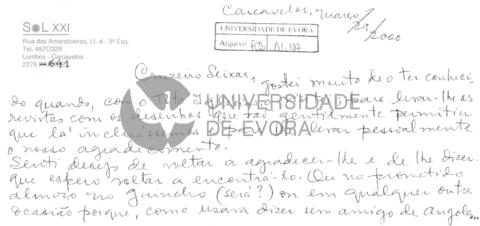 SOL XXI
Rua das Amendoeiras, Lt. 4 - 3º Esq.
Tel. 4570329
Lombos - Carcavelos
2775
Carcavelos, março
2000
UNIVERSIDADE DE EVORA
Arquivo
Cruzeiro Seixas, gostei muito de o ter conheci
do quando, com o para levar-lhe as
revistas com os desenhos que tão gentilmente permitiu
que lá levar pessoalmente
o nosso agradecimento.
Senti desejo de voltar a agradecer-lhe e de lhe dizer
que espero voltar a encontrá-lo. Ou no prometido
almoço no Guincho (será?) ou em qualquer outra
ocasião porque, como usava dizer um amigo de Angola...
UNIVERSIDADE
DE ÉVORA